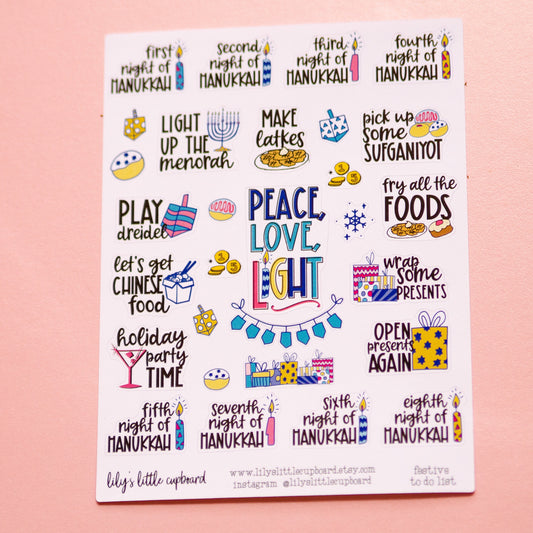 first
night of
HANUKKAH
second
night of
HANUKKAH
third
night of
HANUKKAH
fourth
night of
HANUKKAH
LIGHT
UP THE
menorah
MAKE
latkes
pick up
some
SUFGANIYOT
PLAY
dreidel
PEACE,
LOVE,
LIGHT
fry all the
FOODS
let's get
CHINESE
food
wrap
some
PRESENTS
holiday
party
TIME
OPEN
presents
AGAIN
fifth
night of
HANUKKAH
seventh
night of
HANUKKAH
sixth
night of
HANUKKAH
eighth
night of
HANUKKAH
lily's little cupboard
www.lilyslittlecupboard.etsy.com
instagram @lilyslittlecupboard
festive
to do list